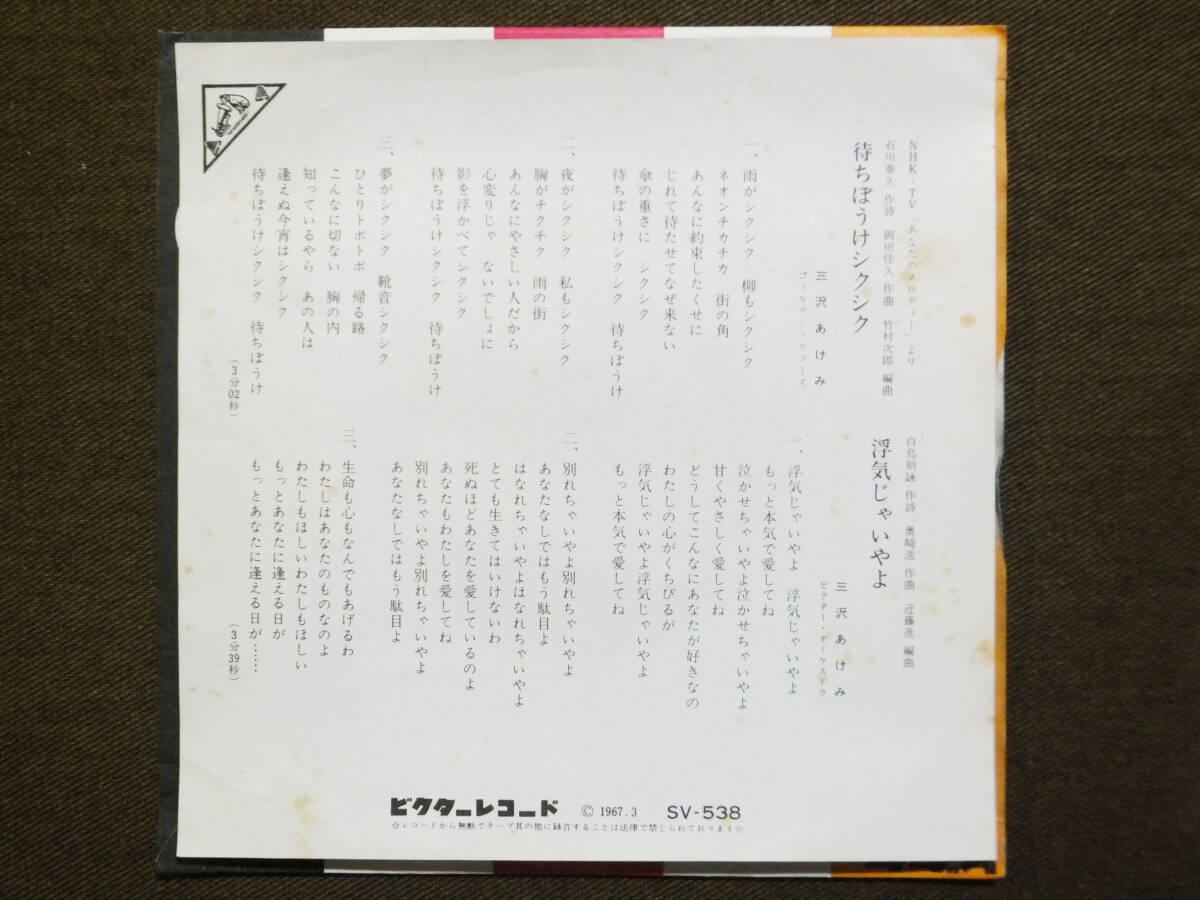 NHK・TV「あなたのメロディー」より
石川泰久 作詩 岡田佳久 作曲 竹村次郎 編曲
待ちぼうけシクシク
三沢あけみ
ゴールデン・エコーズ
一、雨がシクシク 柳もシクシク
ネオンチカチカ 街の角
あんなに約束したくせに
じれて待たせてなぜ来ない
傘の重さに シクシク
待ちぼうけシクシク 待ちぼうけ
二、夜がシクシク 私もシクシク
胸がチクチク 雨の街
あんなにやさしい人だから
心変りじゃ ないでしょに
影を浮かべてシクシク
待ちぼうけシクシク 待ちぼうけ
三、夢がシクシク 靴音シクシク
ひとりトボトボ 帰る路
こんなに切ない 胸の内
知っているやら あの人は
逢えぬ今宵はシクシク
待ちぼうけシクシク 待ちぼうけ
(3分02秒)
白鳥朝詠 作詩 奥崎進 作曲 近藤進 編曲
浮気じゃいやよ
三沢あけみ
ビクター・オーケストラ
一、浮気じゃいやよ 浮気じゃいやよ
もっと本気で愛してね
泣かせちゃいやよ泣かせちゃいやよ
甘くやさしく愛してね
どうしてこんなにあなたが好きなの
わたしの心がくちびるが
浮気じゃいやよ浮気じゃいやよ
もっと本気で愛してね
二、別れちゃいやよ別れちゃいやよ
あなたなしではもう駄目よ
はなれちゃいやよはなれちゃいやよ
とても生きてはいけないわ
死ぬほどあなたを愛しているのよ
あなたもわたしを愛してね
別れちゃいやよ別れちゃいやよ
あなたなしではもう駄目よ
三、生命も心もなんでもあげるわ
わたしはあなたのものなのよ
わたしもほしいわたしもほしい
もっとあなたに逢える日が
もっとあなたに逢える日が……
(3分39秒)
ビクターレコード © 1967.3 SV-538
☆レコードから無断でテープ其の他に録音することは法律で禁じられております☆